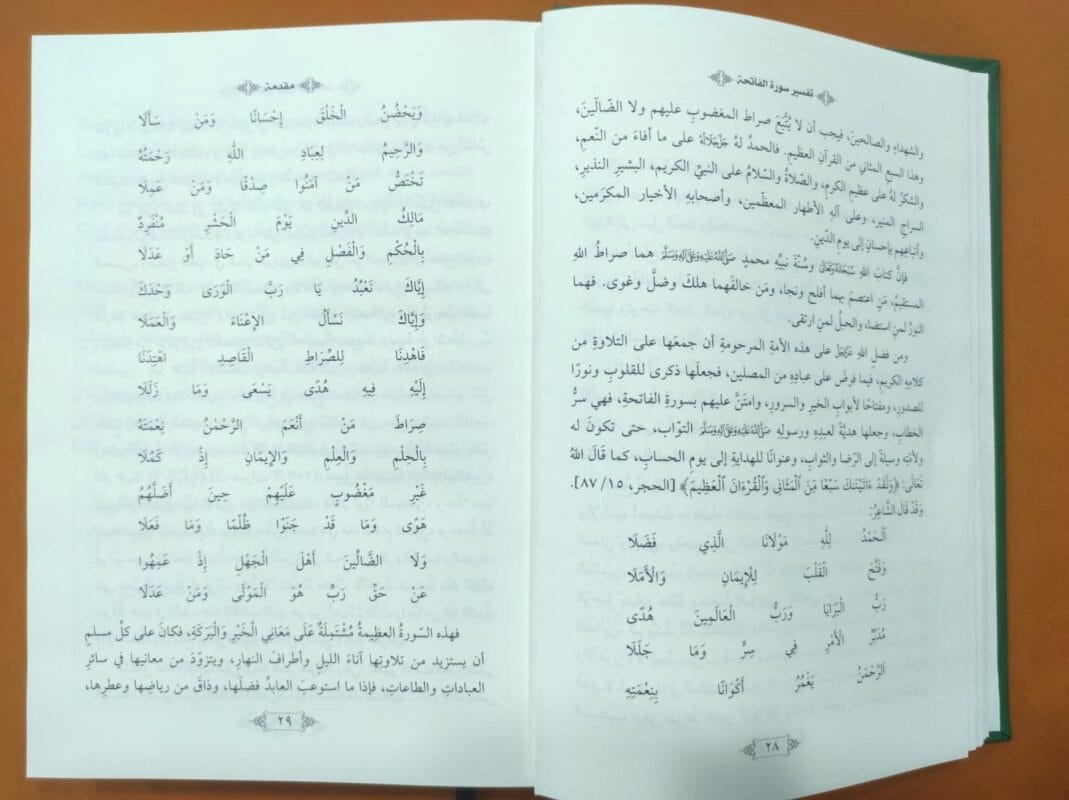 تفسير سورة الفاتحة
والشهداءِ والصالحينَ، فيجب أن لا يُتَّبَعَ صراط المغضوبِ عليهم ولا الضّالّينَ،
وهذا السبع المثاني من القرآنِ العظيمِ. فالحمدُ لهُ جَلَّجَلَالُهُ على ما أفاءَ من النّعمِ،
والشكرُ لهُ على عظيمِ الكرمِ، والصّلاةُ والسّلامُ على النبيِّ الكريمِ، البشيرِ النذيرِ،
السراجِ المنيرِ، وعلى آلهِ الأطهارِ المعظّمين، وأصحابهِ الأخيارِ المكرّمين،
وأتباعِهم بإحسانٍ إلى يومِ الدّينِ.
فإنَّ كتابَ اللهِ سُبْحَانَهُ وَتَعَالَىٰ وسُنّةَ نبيِّهِ محمدٍ صَلَّى اللَّهُ عَلَيْهِ وَعَلَىٰ آلِهِ وَسَلَّمَ هما صراطُ اللهِ
المستقيمُ، مَنِ اعتصمَ بهما أفلح ونجا، ومَن خالفَهما هلكَ وضلَّ وغوى. فهما
النورُ لمنِ استضاءَ، والحبلُ لمنِ ارتقى.
ومن فضلِ اللهِ عَزَّوَجَلَّ على هذه الأمةِ المرحومةِ أن جمعَها على التلاوةِ من
كلامِهِ الكريمِ، فيما فرضَ على عبادِهِ من المصلين، فجعلَها ذكرى للقلوبِ ونورًا
للصدورِ، ومفتاحًا لأبوابِ الخيرِ والسرورِ، وامتَنَّ عليهم بسورةِ الفاتحةِ، فهي سرُّ
الخطابِ، وجعلها هديّةً لعبدِهِ ورسولِهِ صَلَّى اللَّهُ عَلَيْهِ وَعَلَىٰ آلِهِ وَسَلَّمَ التوّاب، حتى تكونَ له
ولأمّتِهِ وسيلةً إلى الرّضا والثوابِ، وعنوانًا للهدايةِ إلى يومِ الحسابِ، كما قالَ اللهُ
تَعَالَى: ﴿وَلَقَدْ ءَاتَيْنَـٰكَ سَبْعًا مِّنَ ٱلْمَثَانِى وَٱلْقُرْءَانَ ٱلْعَظِيمَ﴾ [الحجر، ١٥/ ٨٧].
وَقَدْ قَالَ الشَّاعِرُ:
اَلْحَمْدُ لِلَّهِ مَوْلَانَا الَّذِي فَضَلَا
وَفَتَّحَ الْقَلْبَ لِلْإِيمَانِ وَالْأَمَلَا
رَبُّ الْبَرَايَا وَرَبُّ الْعَالَمِينَ هُدًى
مُدَبِّرُ الْأَمْرِ فِي سِرٍّ وَمَا جَلَلَا
اَلرَّحْمَنُ يَغْمُرُ أَكْوَانًا بِنِعْمَتِهِ
٢٨
مقدمة
وَيَحْضُنُ الْخَلْقَ إِحْسَانًا وَمَنْ سَأَلَا
وَالرَّحِيمُ لِعِبَادِ اللَّهِ رَحْمَتُهُ
تَخْتَصُّ مَنْ آمَنُوا صِدْقًا وَمَنْ عَمِلَا
مَالِكُ الدِّينِ يَوْمَ الْحَشْرِ مُنْفَرِدٌ
بِالْحُكْمِ وَالْفَصْلِ فِي مَنْ حَادَ أَوْ عَدَلَا
إِيَّاكَ نَعْبُدُ يَا رَبَّ الْوَرَى وَحْدَكَ
وَإِيَّاكَ نَسْأَلُ الْإِعْنَاءَ وَالْعَمَلَا
فَاهْدِنَا لِلصِّرَاطِ الْقَاصِدِ اهْتِدَنَا
إِلَيْهِ فِيهِ هُدًى يَسْعَى وَمَا زَلَلَا
صِرَاطَ مَنْ أَنْعَمَ الرَّحْمٰنُ نِعْمَتَهُ
بِالْحِلْمِ وَالْعِلْمِ وَالْإِيمَانِ إِذْ كَمُلَا
غَيْرِ مَغْضُوبٍ عَلَيْهِمْ حِينَ أَضَلَّهُمُ
هَوًى وَمَا قَدْ جَنَوْا ظُلْمًا وَمَا فَعَلَا
وَلَا الضَّالِّينَ أَهْلَ الْجَهْلِ إِذْ عَمِهُوا
عَنْ حَقِّ رَبٍّ هُوَ الْمَوْلَى وَمَنْ عَدَلَا
فهذه السّورةُ العظيمةُ مُشْتَمِلَةٌ عَلَى مَعَانِي الْخَيْرِ وَالْبَرَكَةِ، فكانَ على كلِّ مسلمٍ
أن يستزيد من تلاوتِها آناءَ الليلِ وأطرافَ النهارِ، ويتزوّدَ من معانيها في سائرِ
العباداتِ والطاعاتِ، فإذا ما استوعبَ العابدُ فضلَها، وذاقَ من رياضِها وعطرِها،
٢٩